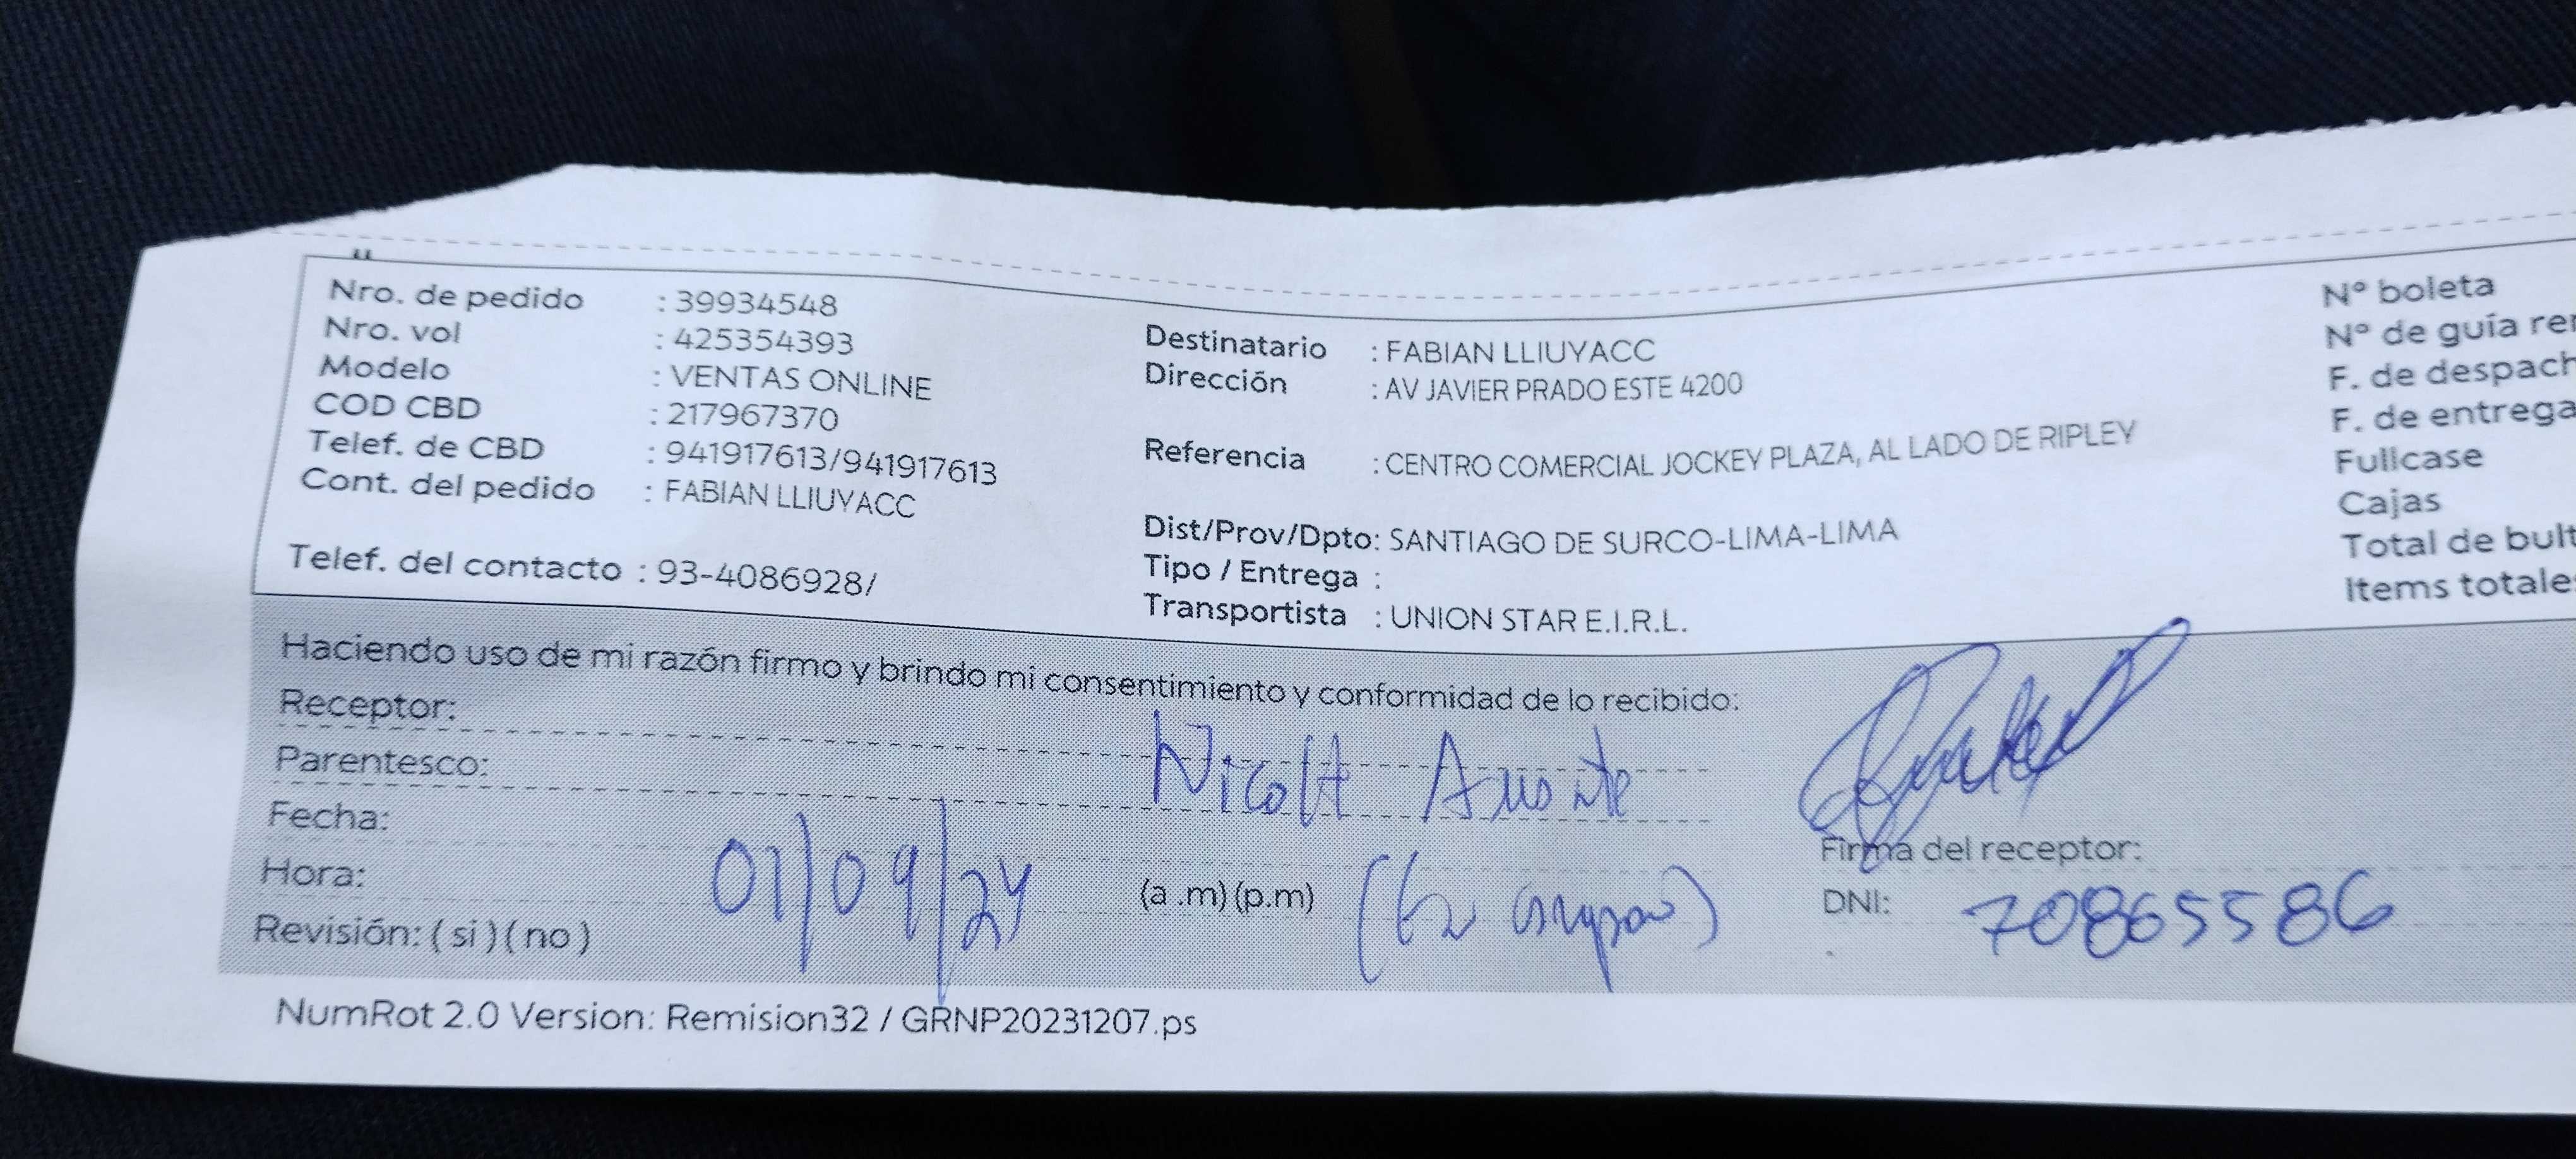 Nro. de pedido : 39934548
Nro. vol : 425354393
Modelo : VENTAS ONLINE
COD CBD : 217967370
Telef. de CBD : 941917613/941917613
Cont. del pedido : FABIAN LLIUYACC
Telef. del contacto : 93-4086928/
Destinatario : FABIAN LLIUYACC
Dirección : AV JAVIER PRADO ESTE 4200
Referencia : CENTRO COMERCIAL JOCKEY PLAZA, AL LADO DE RIPLEY
Dist/Prov/Dpto: SANTIAGO DE SURCO-LIMA-LIMA
Tipo / Entrega :
Transportista : UNION STAR E.I.R.L.
Nº boleta
Nº de guía rem
F. de despach
F. de entrega
Fullcase
Cajas
Total de bult
Items totales
Haciendo uso de mi razón firmo y brindo mi consentimiento y conformidad de lo recibido:
Receptor:
Parentesco: Nicolt
Fecha:
Hora: 01/09/24 (a .m) (p.m)
Revisión: ( si ) ( no )
Firma del receptor:
DNI: 70865586
NumRot 2.0 Version: Remision32 / GRNP20231207.ps